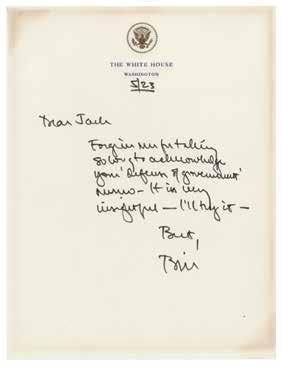 THE WHITE HOUSE
WASHINGTON
5/23
Dear Jack
Forgive me for taking
so long to acknowledge
your 'defense of government'
memo - It is very
insightful - I'll try it -
Best,
Bill